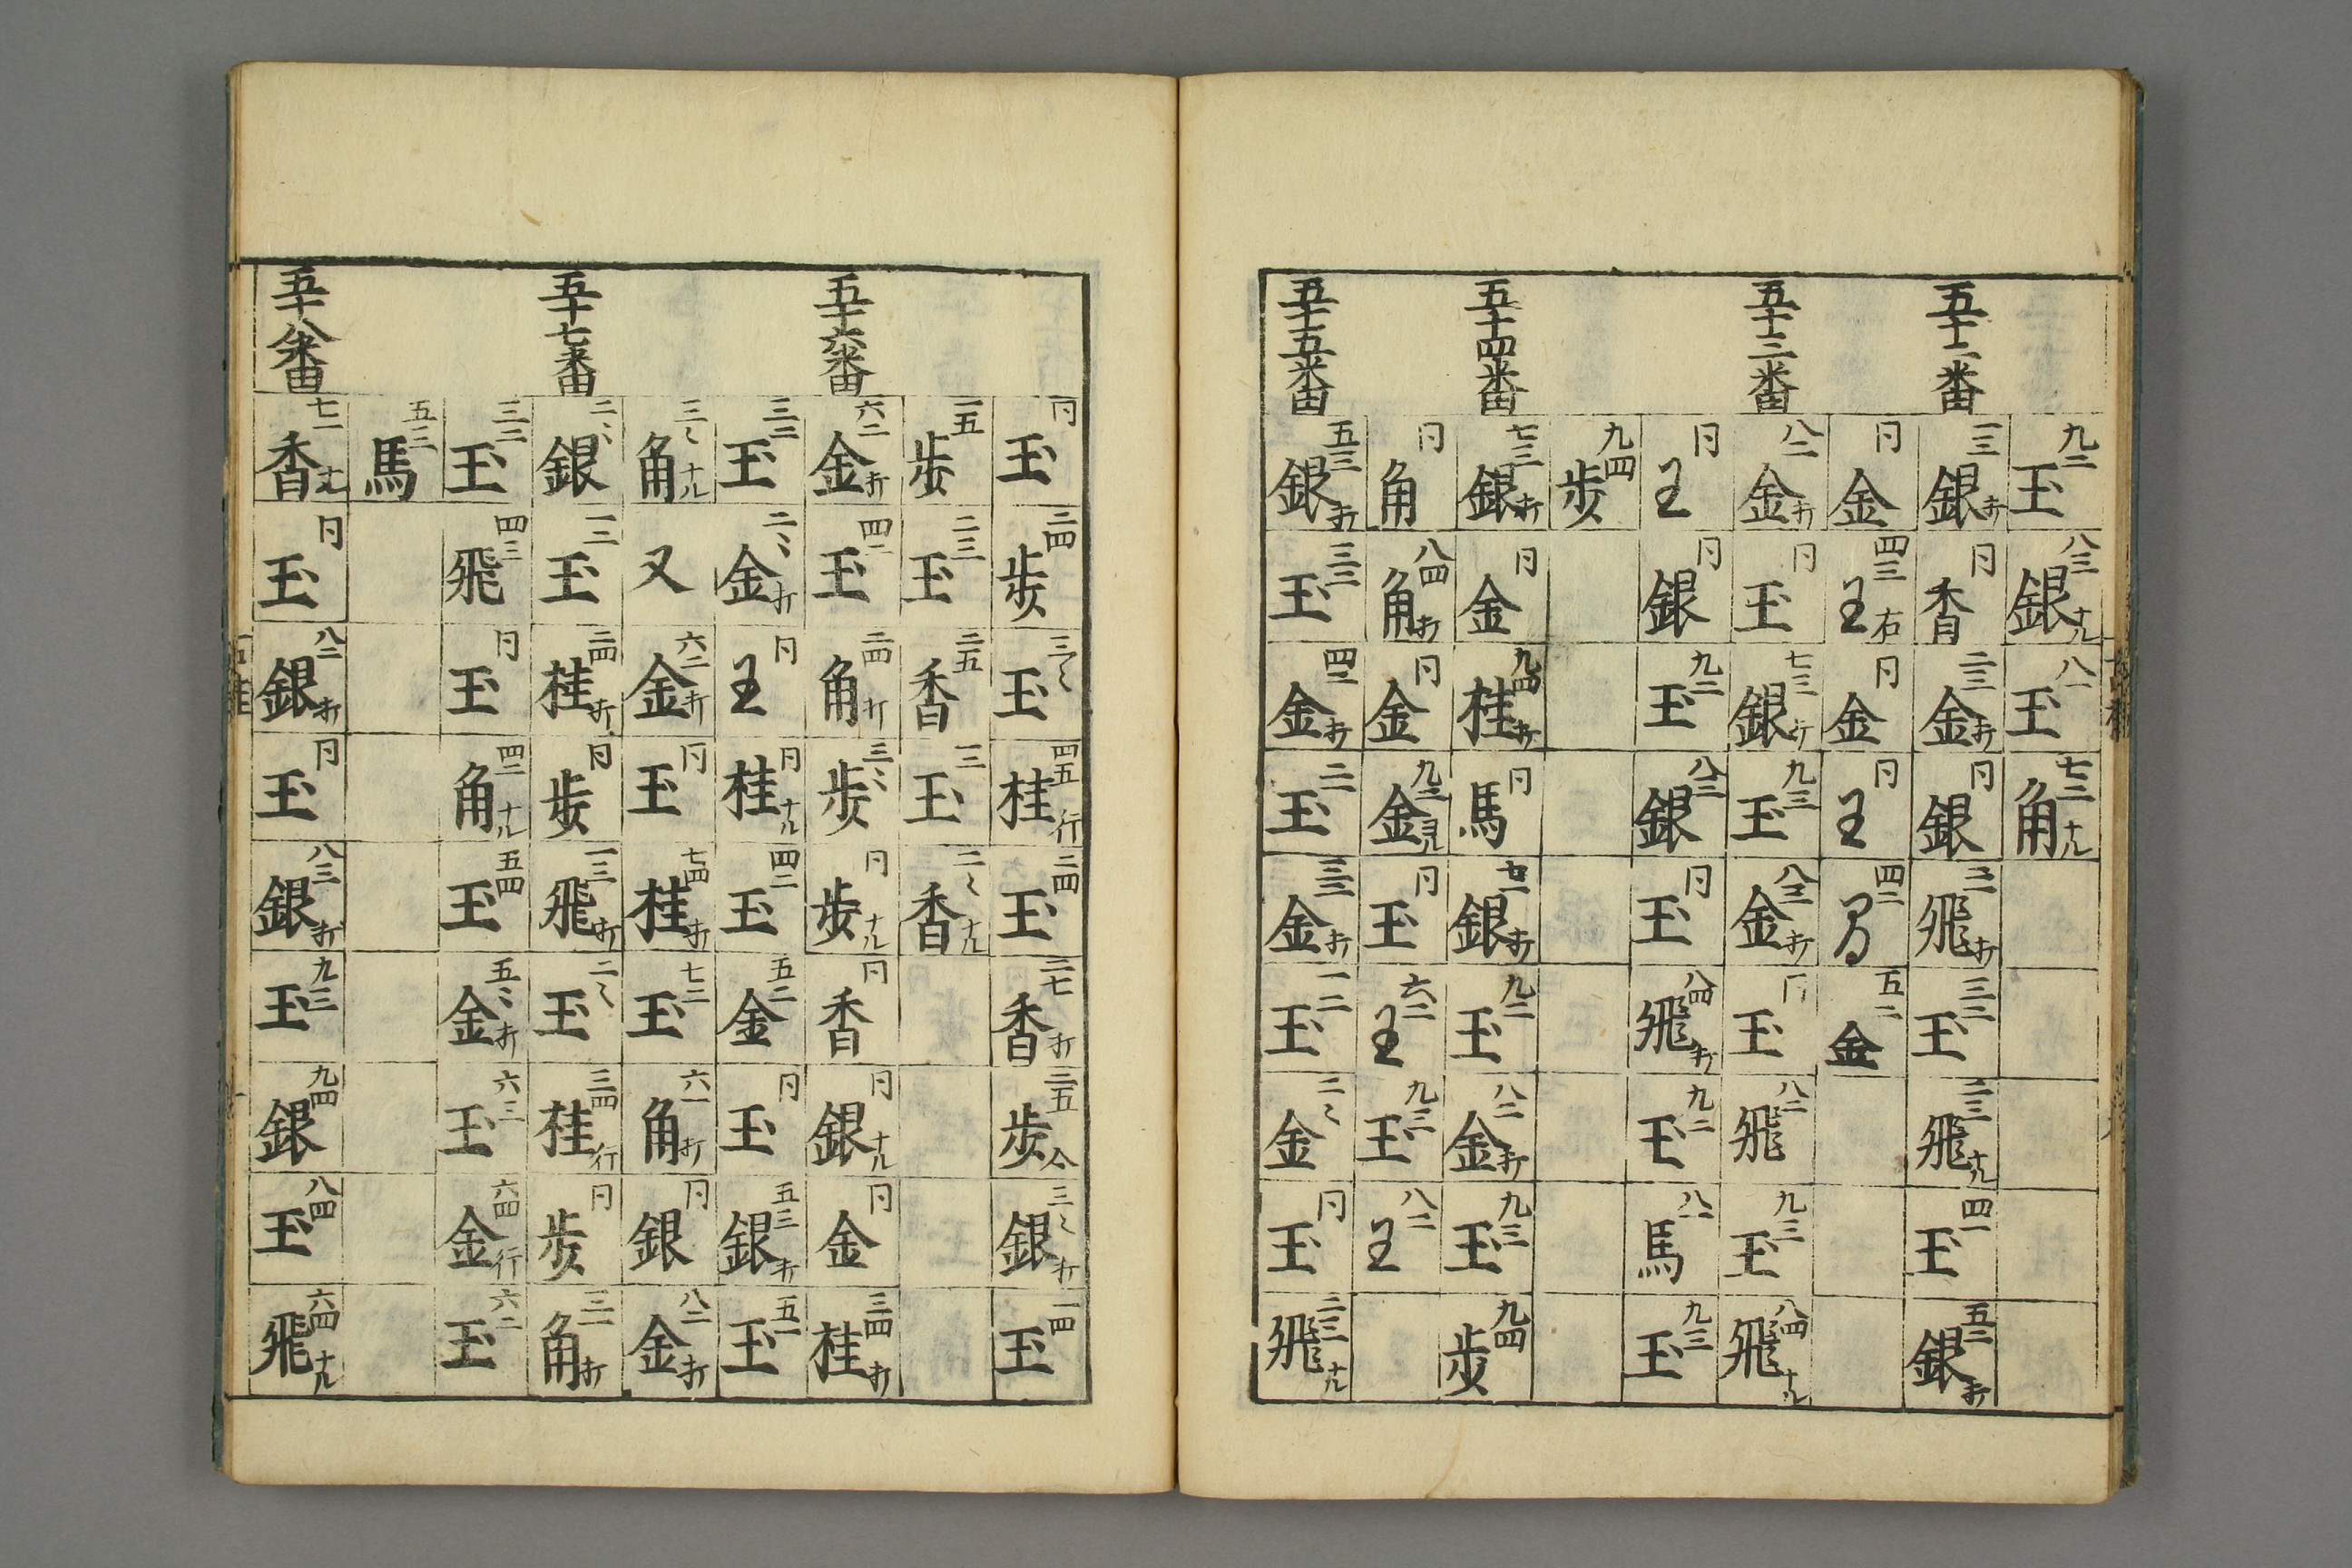 九二玉 八三銀ナル 八一玉 七二角ナル
五十二番 一三銀打 同香 二三金打 同銀 三一飛打 三二玉 二三飛ナル 四一玉 五二銀打
同金 四三王右 同金 同王 四二馬 五二金
五十三番 八二金打 同玉 七三銀行 九三玉 八三金打 同玉 八二飛 九三玉 八四飛ナル
同王 同銀 九二玉 八三銀 同玉 八四飛打 九二王 八一馬 九三玉
九四歩
五十四番 七三銀打 同金 九四桂打 同馬 七一銀打 九二玉 八二金打 九三玉 九四歩
同角 八四角打 同金 九二金ヨル 同玉 六二王 九三玉 八二王
五十五番 五三銀打 三三玉 四二金打 二二玉 三三金打 一二玉 二二金 同玉 二三飛ナル
同玉 三四歩 三三玉 四五桂行 二四玉 二七香打 二五歩合 三三銀打 一四玉
一五歩 二三玉 二五香 三二玉 二二香ナル
五十六番 六二金打 四二玉 二四角打 三三歩 同歩ナル 同香 同銀ナル 同金 三四桂打
三二玉 二二金打 同王 同桂ナル 四二玉 五二金 同玉 五三銀打 五一玉
三三角ナル 又 六二金打 同玉 七四桂打 七二玉 六一角打 同銀 八二金打
五十七番 二二銀 一二玉 二四桂打 同歩 一三飛打 二二玉 三四桂行 同歩 三一角打
三二玉 四三飛 同玉 四二角ナル 五四玉 五五金打 六三玉 六四金行 六二玉
五三馬
五十八番 七一香ナル 同玉 八二銀打 同玉 八三銀打 九三玉 九四銀 八四玉 六四飛ナル